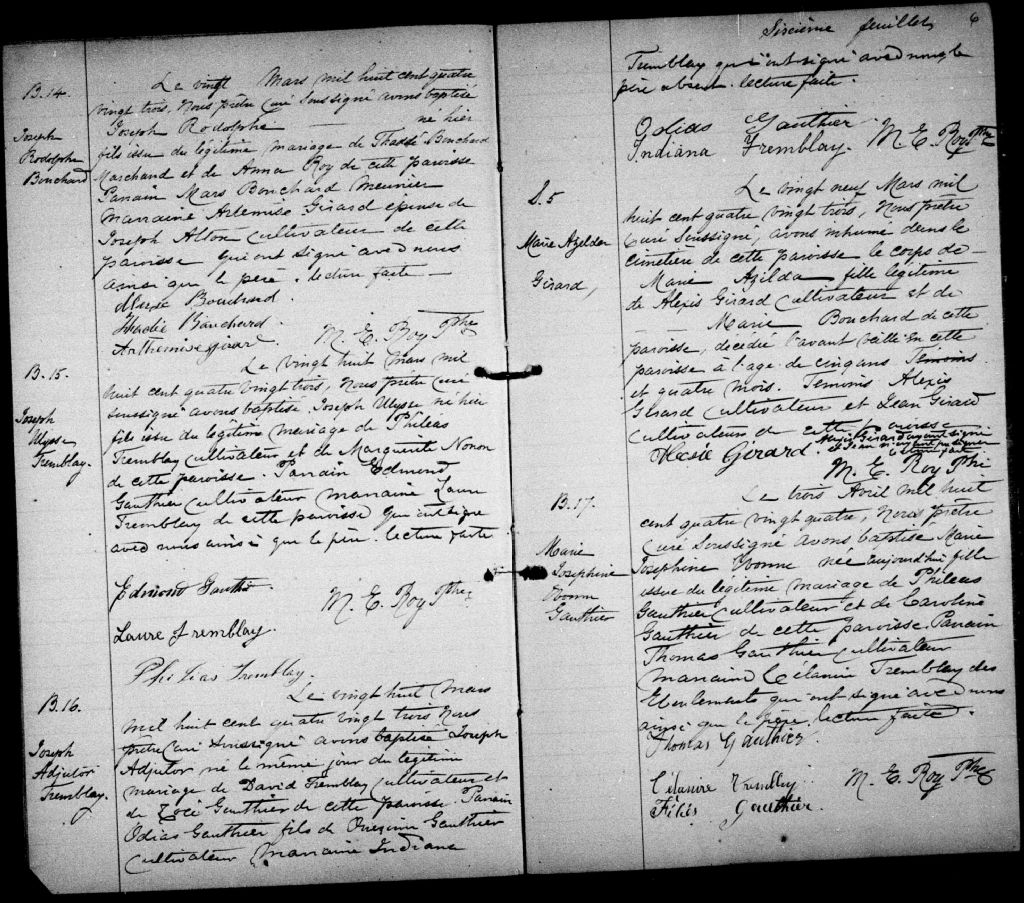 B.14.
Joseph
Rodolphe
Bouchard
Le vingt Mars mil huit cent quatre
vingt trois, Nous prêtre Curé Soussigné avons baptisé
Joseph Rodolphe né hier
fils issu du légitime mariage de Thadée Bouchard
Marchand et de Anna Roy de cette paroisse
Parrain Mars Bouchard Meunier
Marraine Artemise Girard épouse de
Joseph Cultivateur de cette
paroisse qui ont signé avec nous
ainsi que le père. lecture faite
Bouchard
Thadée Bouchard.
M. E. Roy Ptre
B.15.
Joseph
Ulysse
Tremblay.
Le vingt huit Mars mil
huit cent quatre vingt trois, Nous prêtre Curé
soussigné avons baptisé Joseph Ulysse né hier
fils issu du légitime mariage de Philéas
Tremblay cultivateur et de Marguerite
de cette paroisse. Parrain Edmond
Gauthier Cultivateur Marraine Laure
Tremblay de cette paroisse qui ont signé
avec nous ainsi que le père. lecture faite
Edmond Gauthier
M. E. Roy Ptre
Laure Tremblay.
Philias Tremblay.
B.16.
Joseph
Adjutor
Tremblay.
Le vingt huit Mars
mil huit cent quatre vingt trois Nous
prêtre Curé soussigné avons baptisé Joseph
Adjutor né le même jour du légitime
mariage de David Tremblay Cultivateur et
de Zoé Gauthier de cette paroisse. Parrain
Odias Gauthier fils de Onésime Gauthier
Cultivateur Marraine Indiana
Sixième feuillet 6
Tremblay qui ont signé avec nous le
père absent. lecture faite.
Odias Gauthier
Indiana Tremblay. M. E. Roy Ptre
S. 5
Marie Azelda
Girard,
Le vingt neuf Mars mil
huit cent quatre vingt trois, Nous prêtre
Curé Soussigné, avons inhumé dans le
cimetière de cette paroisse le corps de
Marie Azilda fille légitime
de Alexis Girard Cultivateur et de
Marie Bouchard de cette
paroisse, décédée l'avant veille en cette
paroisse à l'age de cinq ans Temoins
et quatre mois. Temoins Alexis
Girard cultivateur et Jean Girard
cultivateur de cette paroisse
Alexis Girard ayant signé
Girard.
lecture faite
M. E. Roy Ptre
B.17.
Marie
Josephine
Yvonne
Gauthier
Le trois Avril mil huit
cent quatre vingt quatre, Nous prêtre
Curé Soussigné avons baptisé Marie
Josephine Yvonne née aujourd'hui fille
issue du légitime mariage de Philéas
Gauthier Cultivateur et de Caroline
Gauthier de cette paroisse. Parrain
Thomas Gauthier cultivateur
Marraine Célanire Tremblay des
Eboulements qui ont signé avec nous
ainsi que le père, lecture faite.
Thomas Gauthier.
Célanire Tremblay
M. E. Roy Ptre
Gauthier.